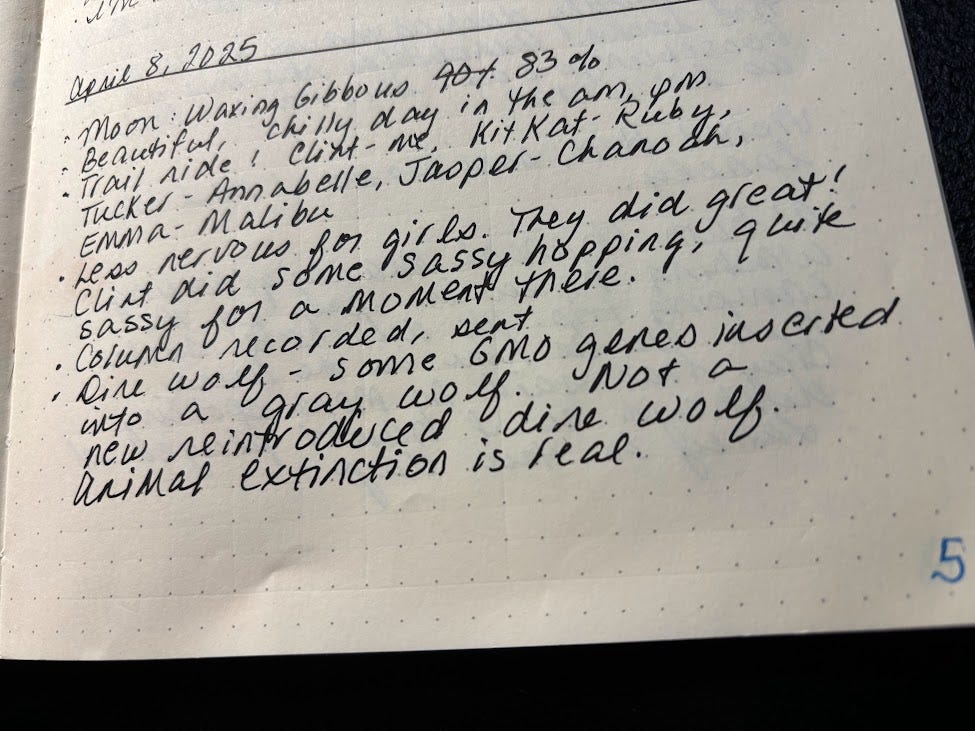 April 8, 2025
· Moon: Waxing Gibbous 90% 83%
· Beautiful, chilly day in the am, pm.
· Trail ride! Clint - me, KitKat - Ruby,
Tucker - Annabelle, Jasper - Chanoah,
Emma - Malibu
· Less nervous for girls. They did great!
Clint did some sassy hopping, quite
sassy for a moment there.
· Column recorded, sent
· Dire wolf - some GMO genes inserted
into a gray wolf. Not a
new reintroduced dire wolf.
Animal extinction is real.
5